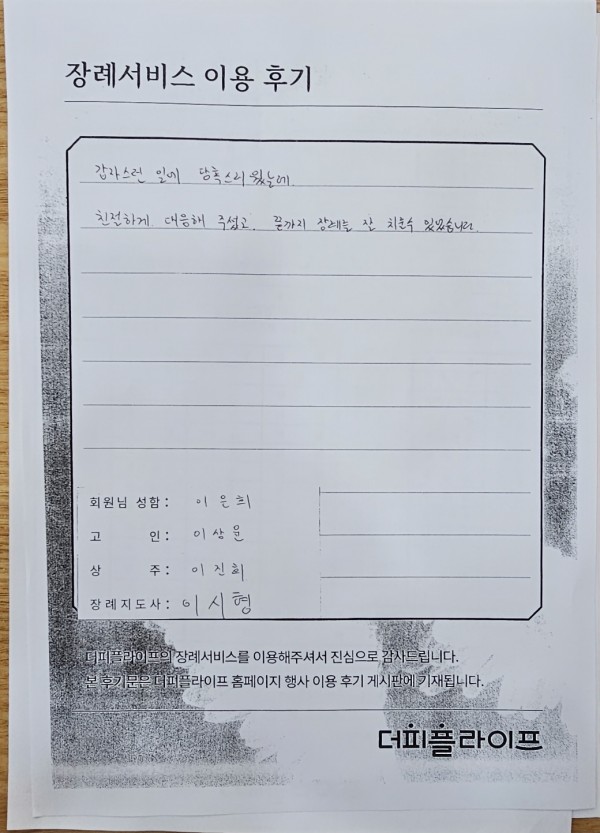 장례서비스 이용 후기
갑작스런 일에 당혹스러웠는데
친절하게 대응해 주셨고, 끝까지 장례를 잘 치룰수 있었습니다.
회원님 성함 : 이은희
고 인 : 이상윤
상 주 : 이진희
장례지도사 : 이시형
더피플라이프의 장례서비스를 이용해주셔서 진심으로 감사드립니다.
본 후기문은 더피플라이프 홈페이지 행사 이용 후기 게시판에 기재됩니다.
더피플라이프